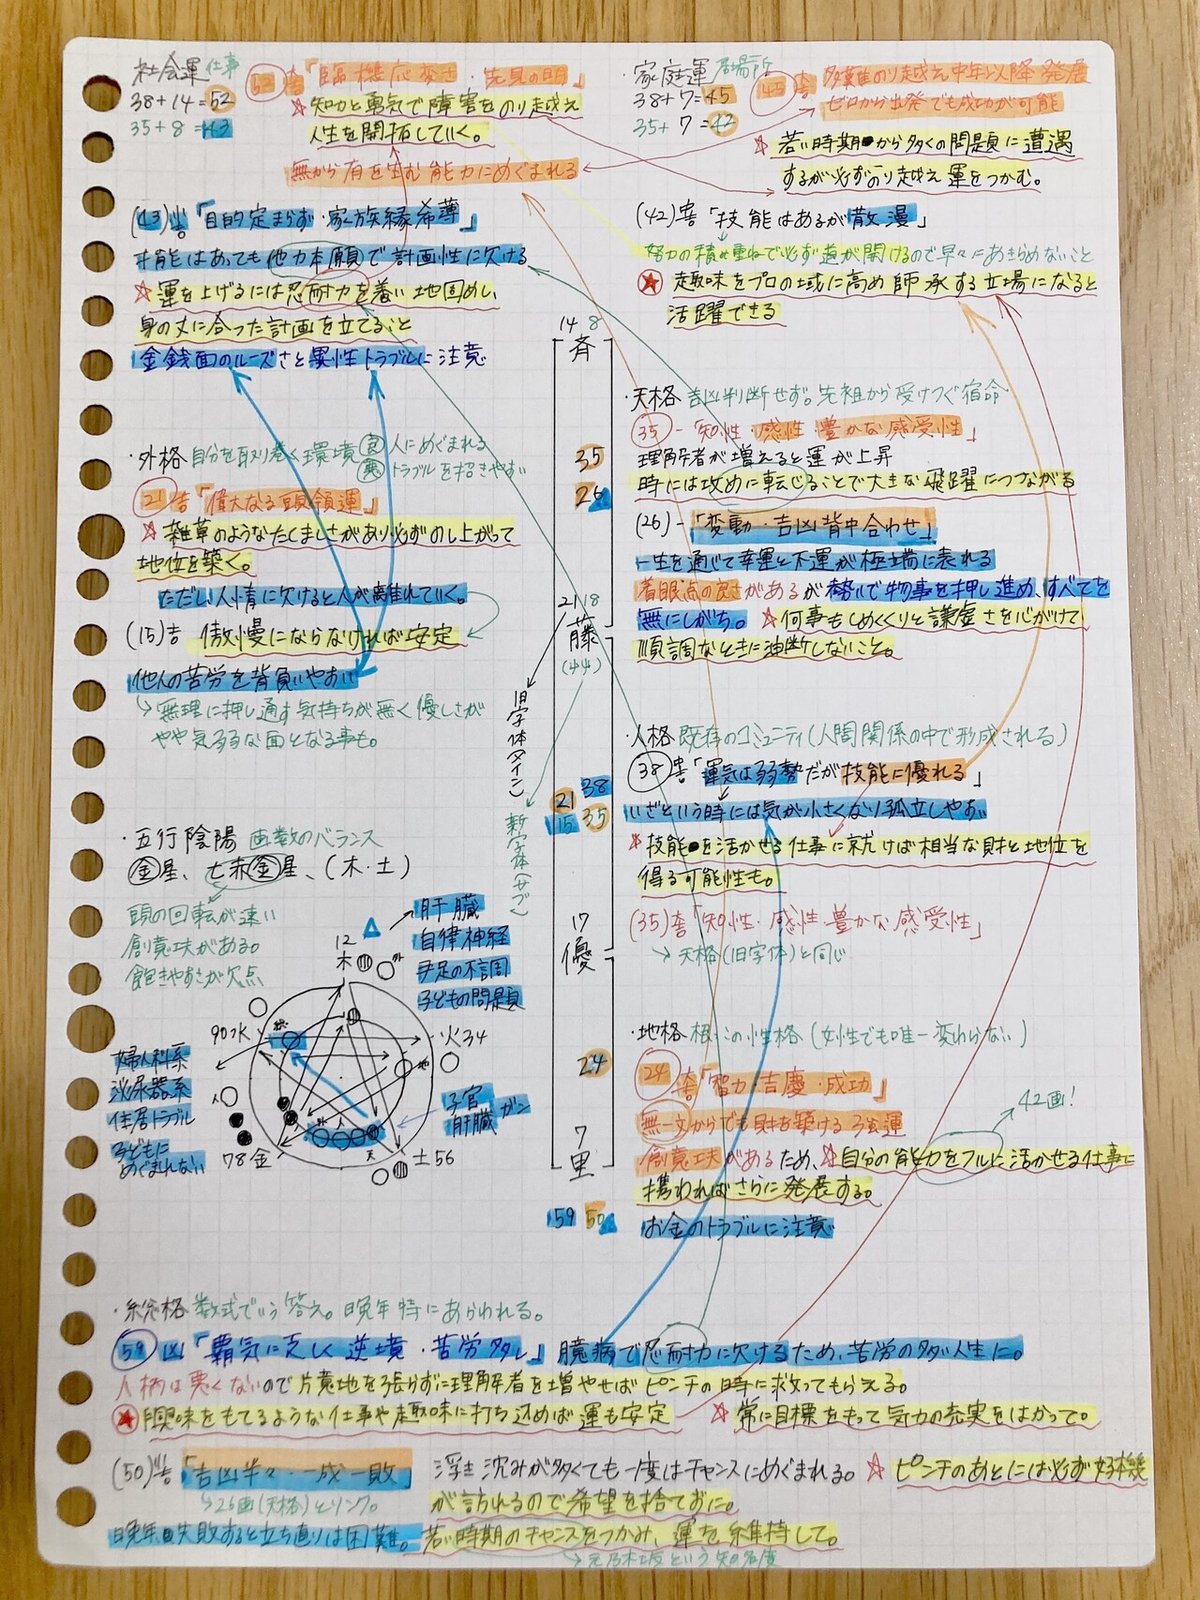 社会運 仕事
38+14=52
35+8=43
52 吉「臨機応変さ・先見の明」
☆知力と勇気で障害をのり越え
人生を開拓していく。
無から有を生む能力にめぐまれる
(43)半吉「目的定まらず・家族縁希薄」
才能はあっても他力本願で計画性に欠ける
☆運を上げるには忍耐力を養い地固めし、
身の丈に合った計画を立てること
金銭面のルーズさと異性トラブルに注意
・外格 自分を取り巻く環境 良 人にめぐまれる
悪 トラブルを招きやすい
21 吉「偉大なる頭領運」
☆雑草のようなたくましさがあり必ずのし上がって
地位を築く。
ただし人情に欠けると人が離れていく。
(15)吉 傲慢にならなければ安定
他人の苦労を背負いやすい
↳無理に押し通す気持ちが無く優しさが
やや気弱な面となる事も。
・五行陰陽 画数のバランス
金星、七赤金星、(木・土)
頭の回転が速い
創意工夫がある。
飽きやすさが欠点
肝臓
自律神経
手足の不調
子どもの問題
12
木
外
90水
火34
婦人科系
泌尿器系
住居トラブル
子どもに
めぐまれない
子宮
肝臓 ガン
人
天
78金
土56
14 8
斉
35
26
21 18
藤
(44)
旧字体(メイン)
新字体(サブ)
21 38
15 35
17
優
24
7
里
59 50
・家庭運 居場所
38+7=45
35+7=42
45 吉 多難のり越え中年以降発展
ゼロから出発でも成功が可能
☆若い時期から多くの問題に遭遇
するが必ずのり越え運をつかむ。
(42)半吉「技能はあるが散漫」
努力の積み重ねで必ず道が開けるので早々にあきらめないこと
☆趣味をプロの域に高め師承する立場になると
活躍できる
・天格 吉凶判断せず。先祖から受けつぐ宿命
35-「知性・感性・豊かな感受性」
理解者が増えると運が上昇
時には攻めに転じることで大きな飛躍につながる
(26)-「変動・吉凶背中合わせ」
一生を通じて幸運と不運が極端に表れる
着眼点の良さがあるが勢いで物事を押し進め、すべてを
無にしがち。☆何事もしめくくりと謙虚さを心がけて
順調なときに油断しないこと。
・人格 既存のコミュニティ(人間関係の中で形成される)
38 半吉「運気は弱勢だが技能に優れる」
いざという時には気が小さくなり孤立しやすい
☆技能を活かせる仕事に就けば相当な財と地位を
得る可能性も。
(35)吉「知性・感性・豊かな感受性」
→天格(旧字体)と同じ
・地格 根っこの性格(女性でも唯一変わらない)
24 大吉「智力・吉慶・成功」
無一文からでも財を築ける強運
創意工夫があるため、☆自分の能力をフルに活かせる仕事に
携わればさらに発展する。
お金のトラブルに注意
42画!
・総格 数式でいう答え。晩年特にあらわれる。
59 凶「覇気に乏しく逆境・苦労多し」臆病で忍耐力に欠けるため、苦労の多い人生に。
人柄は悪くないので片意地を張らずに理解者を増やせばピンチの時に救ってもらえる。
☆興味をもてるような仕事や趣味に打ち込めば運も安定 ☆常に目標をもって気力の充実をはかって。
(50)半吉「吉凶半々・一成一敗」 浮き沈みが多くても一度はチャンスにめぐまれる。☆ピンチのあとには必ず好機
↳26画(天格)とリンク。 が訪れるので希望を捨てずに。
晩年失敗すると立ち直りは困難。若い時期のチャンスをつかみ、運を維持して。
→元乃木坂という知名度